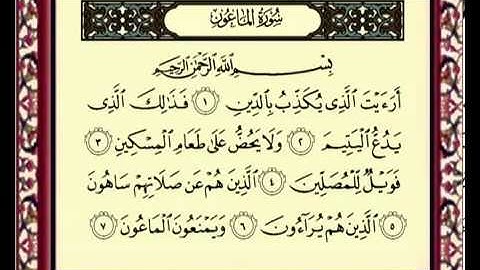 سُورَةُ المَاعُونِ
بِسْمِ اللَّهِ الرَّحْمَٰنِ الرَّحِيمِ
أَرَءَيْتَ الَّذِى يُكَذِّبُ بِالدِّينِ ١ فَذَٰلِكَ الَّذِى
يَدُعُّ الْيَتِيمَ ٢ وَلَا يَحُضُّ عَلَىٰ طَعَامِ الْمِسْكِينِ ٣
فَوَيْلٌ لِّلْمُصَلِّينَ ٤ الَّذِينَ هُمْ عَن صَلَاتِهِمْ سَاهُونَ
٥ الَّذِينَ هُمْ يُرَآءُونَ ٦ وَيَمْنَعُونَ الْمَاعُونَ ٧